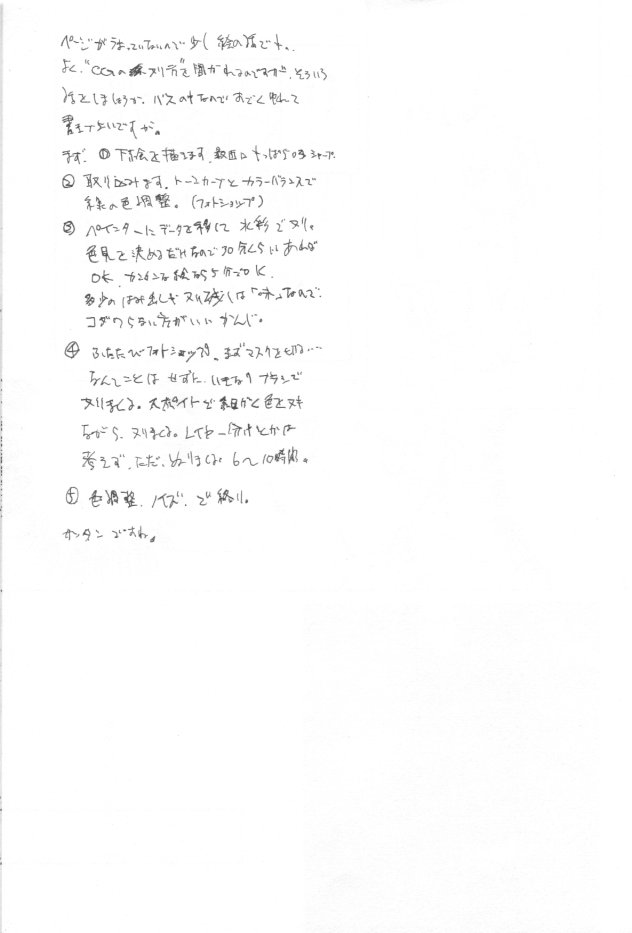 ページがうまっていないので少し絵の話です。
よく、"CGのヌリ方"を聞かれるのですが、そういう
話をしましょうか。バスの中なのですごくゆれて
書きづらいですが。
まず、① 下絵を描きます。最近はもっぱら0.5シャープ
② 取り込みます。トーンカーブとカラーバランスで
線の色調整。(フォトショップ)
③ ペインターにデータを移して水彩でヌリ。
色見を決めるだけなので30分くらいあれば
OK カンタンな絵なら5分でOK
多少のはみ出しやヌリ残しは「味」なので、
コダワらない方がいいかんじ。
④ ふたたびフォトショップ。まずマスクを切る…
なんてことはせずに、いきなりブラシで
ヌリまくる。スポイトで細かく色をヌキ
ながら、ヌリまくる。レイヤー分けとかは
考えず、ただ、ぬりまくる 6〜10時間。
⑤ 色調整、ノイズ、で終り。
カンタンですね。